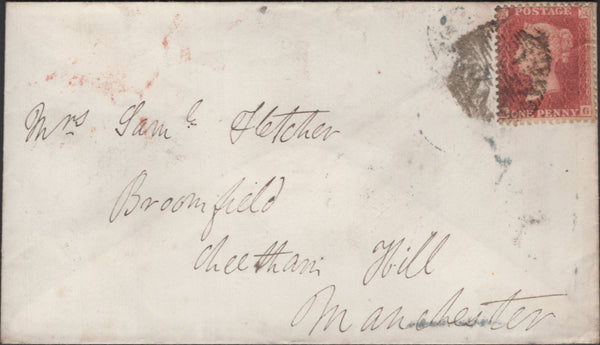 POSTAGE
ONE PENNY G
Mrs Saml. Fletcher
Broomfield
Cheetham Hill
Manchester